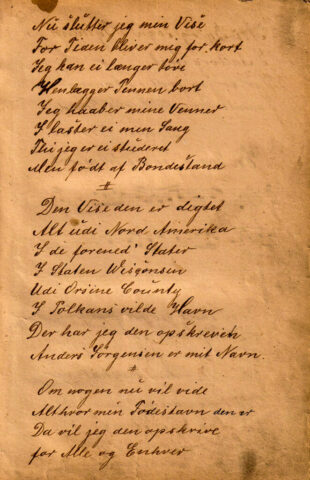 Nu slutter jeg min Vise
For Tiden bliver mig for kort
Jeg kan ei længer töve
Henlægger Pennen bort
Jeg haaber mine Venner
I laster ei min Sang
Thi jeg er ei studeret
Men födt af Bondestand
#
Den Vise den er digtet
Alt udi Nord Amerika
I de forened' Stater
I Staten Wisconsin
Udi County
I vilde Havn
Der har jeg den opskreven
Anders Sörgensen er mit Navn.
*
Om nogen nu vil vide
Althvor min Födestavn den er
Da vil jeg den opskrive
for Alle og Enhver